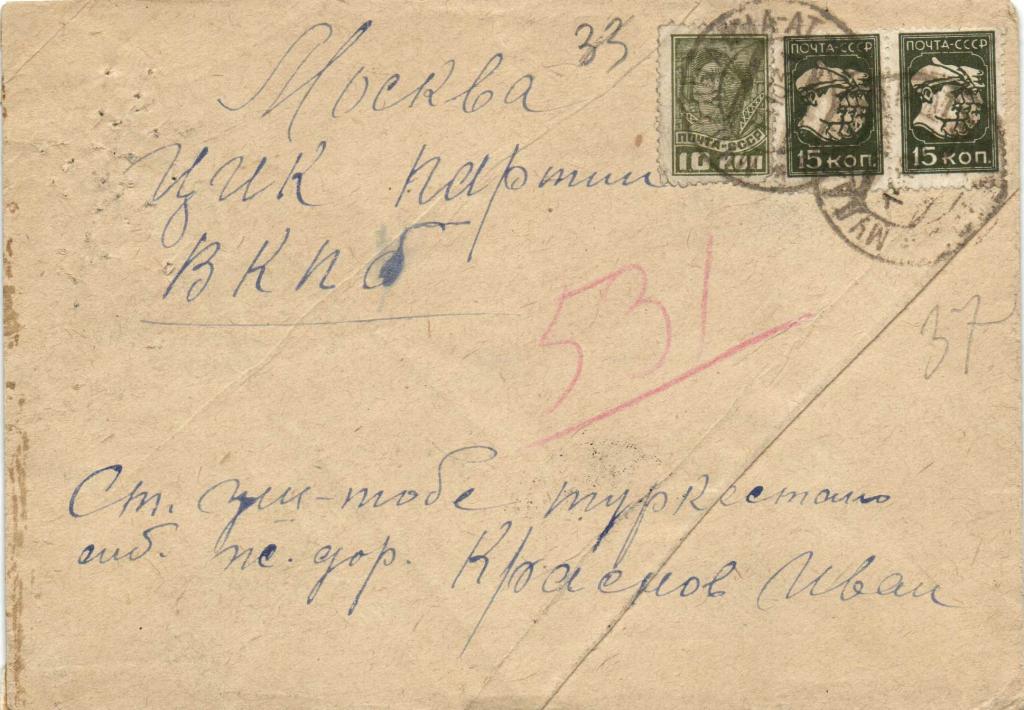 33
Москва
ЦИК партии
ВКПб
ПОЧТА-СССР
10 КОП
ПОЧТА-СССР
15 КОП.
ПОЧТА-СССР
15 КОП.
531
37
Ст. Уш-тобе туркестано
сиб. ж. дор. Краснов Иван